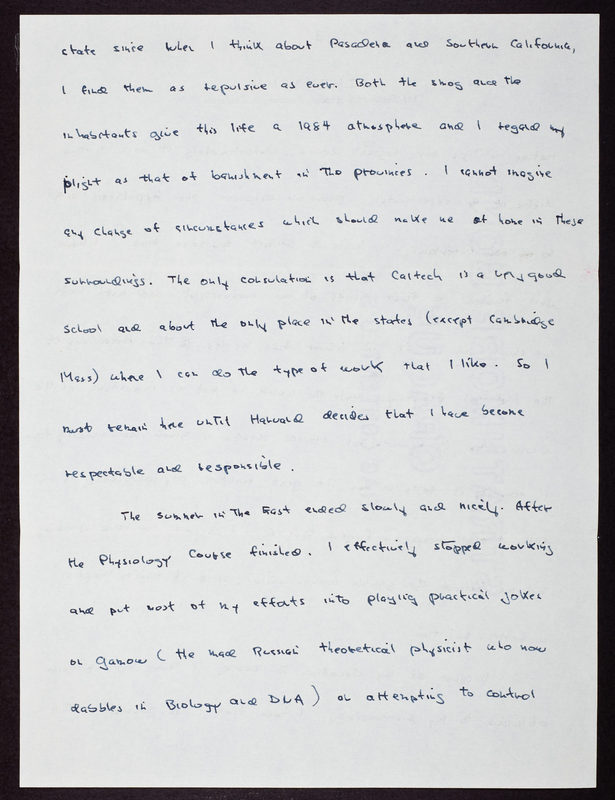 state since when I think about Pasadena and Southern California,
I find them as repulsive as ever. Both the smog and the
inhabitants give this life a 1984 atmosphere and I regard my
plight as that of banishment in the provinces. I cannot imagine
any change of circumstances which should make me at home in these
surroundings. The only consulation is that Caltech is a very good
school and about the only place in the states (except Cambridge
Mass) where I can do the type of work that I like. So I
must remain here until Harvard decides that I have become
respectable and responsible.
The summer in the East ended slowly and nicely. After
the Physiology Course finished. I effectively stopped working
and put most of my efforts into playing practical jokes
on Gamow (the mad Russian theoretical physicist who now
dabbles in Biology and DNA) or attempting to control